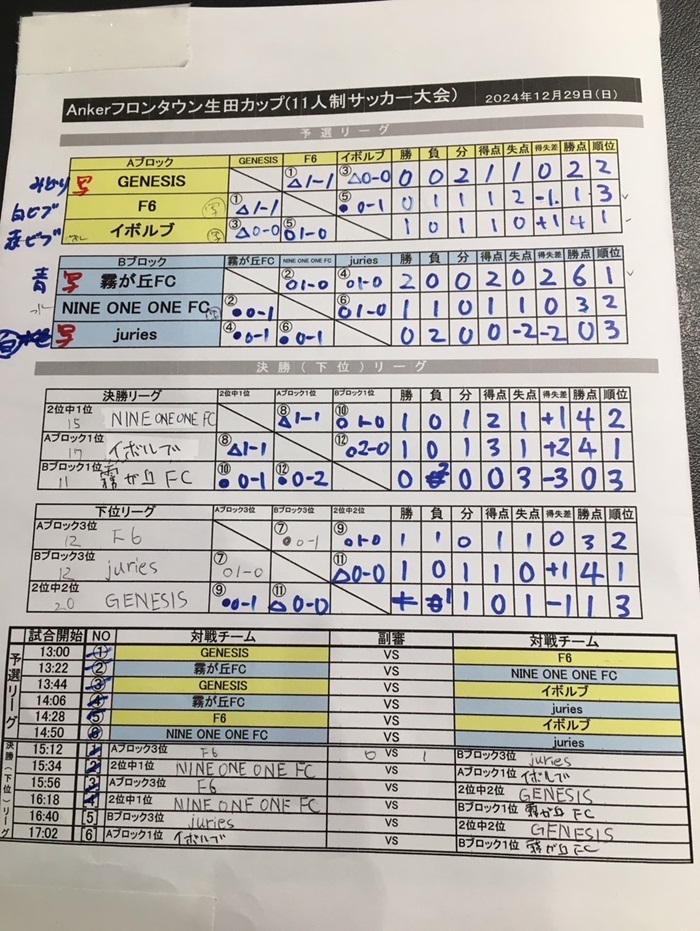 Ankerフロンタウン生田カップ(11人制サッカー大会) 2024年12月29日(日)
予選リーグ
Aブロック GENESIS F6 イボルブ 勝 負 分 得点 失点 得失差 勝点 順位
みどり 写 GENESIS ①△1-1 ③△0-0 0 0 2 1 1 0 2 2
白ビブ F6 ①△1-1 ⑤●0-1 0 1 1 1 2 -1 1 3
赤ビブ イボルブ ③△0-0 ⑤○1-0 1 0 1 1 0 +1 4 1
Bブロック 霧が丘FC NINE ONE ONE FC juries 勝 負 分 得点 失点 得失差 勝点 順位
青 写 霧が丘FC ②○1-0 ④○1-0 2 0 0 2 0 2 6 1
NINE ONE ONE FC ②●0-1 ⑥○1-0 1 1 0 1 1 0 3 2
写 juries ④●0-1 ⑥●0-1 0 2 0 0 -2 -2 0 3
決勝(下位)リーグ
決勝リーグ 2位中1位 Aブロック1位 Bブロック1位 勝 負 分 得点 失点 得失差 勝点 順位
2位中1位 15 NINE ONE ONE FC ⑧△1-1 ⑩○1-0 1 0 1 2 1 +1 4 2
Aブロック1位 17 イボルブ ⑧△1-1 ⑫○2-0 1 0 1 3 1 +2 4 1
Bブロック1位 11 霧が丘FC ⑩●0-1 ⑫●0-2 0 2 0 0 3 -3 0 3
下位リーグ Aブロック3位 Bブロック3位 2位中2位 勝 負 分 得点 失点 得失差 勝点 順位
Aブロック3位 12 F6 ⑦●0-1 ⑨○1-0 1 1 0 1 1 0 3 2
Bブロック3位 12 juries ⑦○1-0 ⑪△0-0 1 0 1 1 0 +1 4 1
2位中2位 20 GENESIS ⑨●0-1 ⑪△0-0 1 1 0 1 -1 1 3
試合開始 NO 対戦チーム 副審 対戦チーム
予選リーグ
13:00 ① GENESIS VS F6
13:22 ② 霧が丘FC VS NINE ONE ONE FC
13:44 ③ GENESIS VS イボルブ
14:06 ④ 霧が丘FC VS juries
14:28 ⑤ F6 VS イボルブ
14:50 ⑥ NINE ONE ONE FC VS juries
決勝(下位)リーグ
15:12 1 Aブロック3位 F6 0 VS 1 Bブロック3位 juries
15:34 2 2位中1位 NINE ONE ONE FC VS Aブロック1位 イボルブ
15:56 3 Aブロック3位 F6 VS 2位中2位 GENESIS
16:18 4 2位中1位 NINE ONE ONE FC VS Bブロック1位 霧が丘FC
16:40 5 Bブロック3位 juries VS 2位中2位 GENESIS
17:02 6 Aブロック1位 イボルブ VS Bブロック1位 霧が丘FC